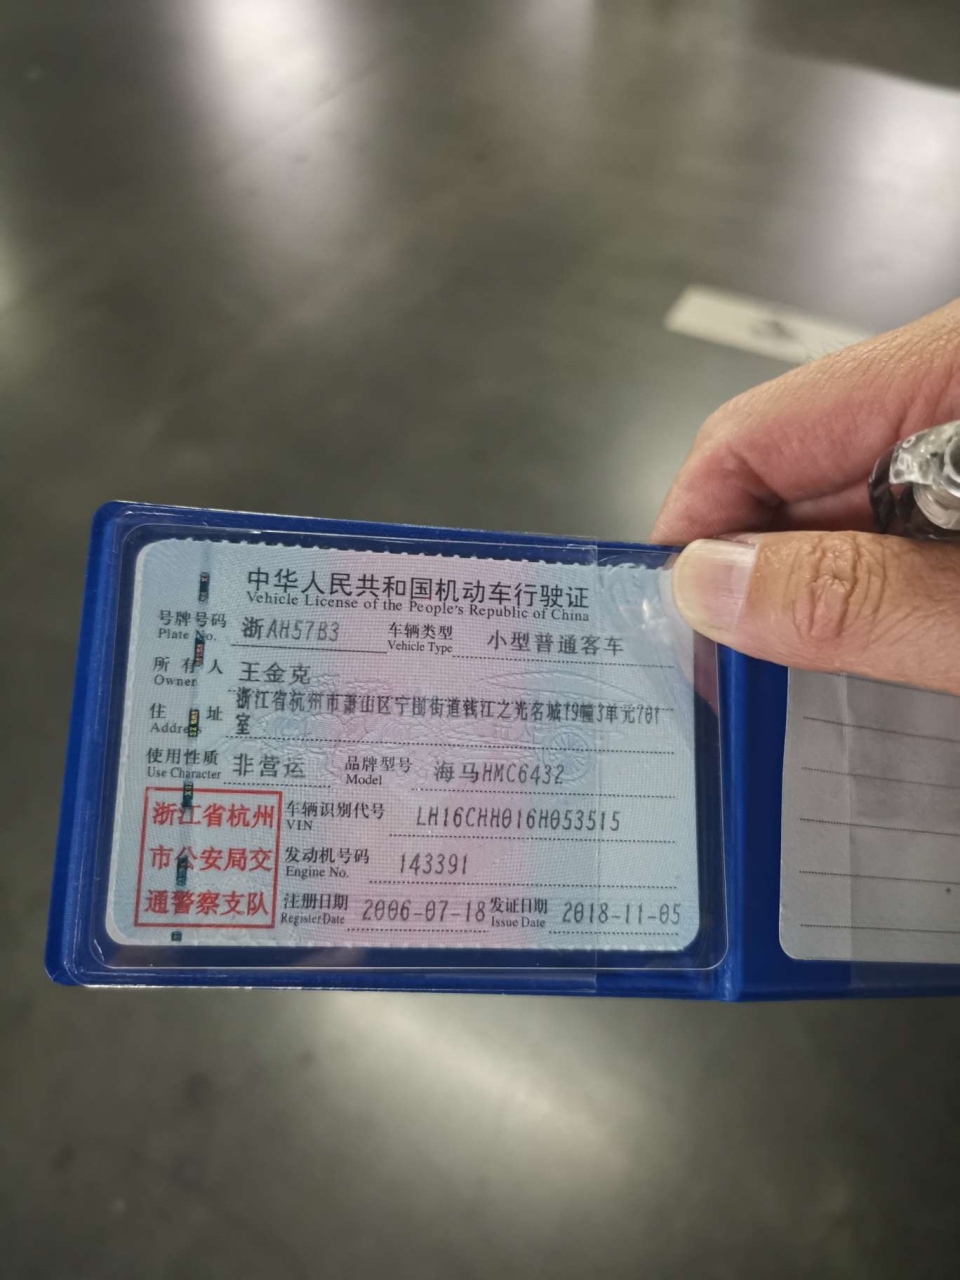 中华人民共和国机动车行驶证
Vehicle License of the People's Republic of China
号牌号码 浙AH57B3 车辆类型 小型普通客车
Plate No. Vehicle Type
所有人 王金克
Owner
住址 浙江省杭州市萧山区宁围街道钱江之光名城19幢3单元701
Address 室
使用性质 非营运 品牌型号 海马HMC6432
Use Character Model
浙江省杭州 车辆识别代号 LH16CHH016H053515
VIN
市公安局交 发动机号码 143391
Engine No.
通警察支队 注册日期 2006-07-18 发证日期 2018-11-05
Register Date Issue Date